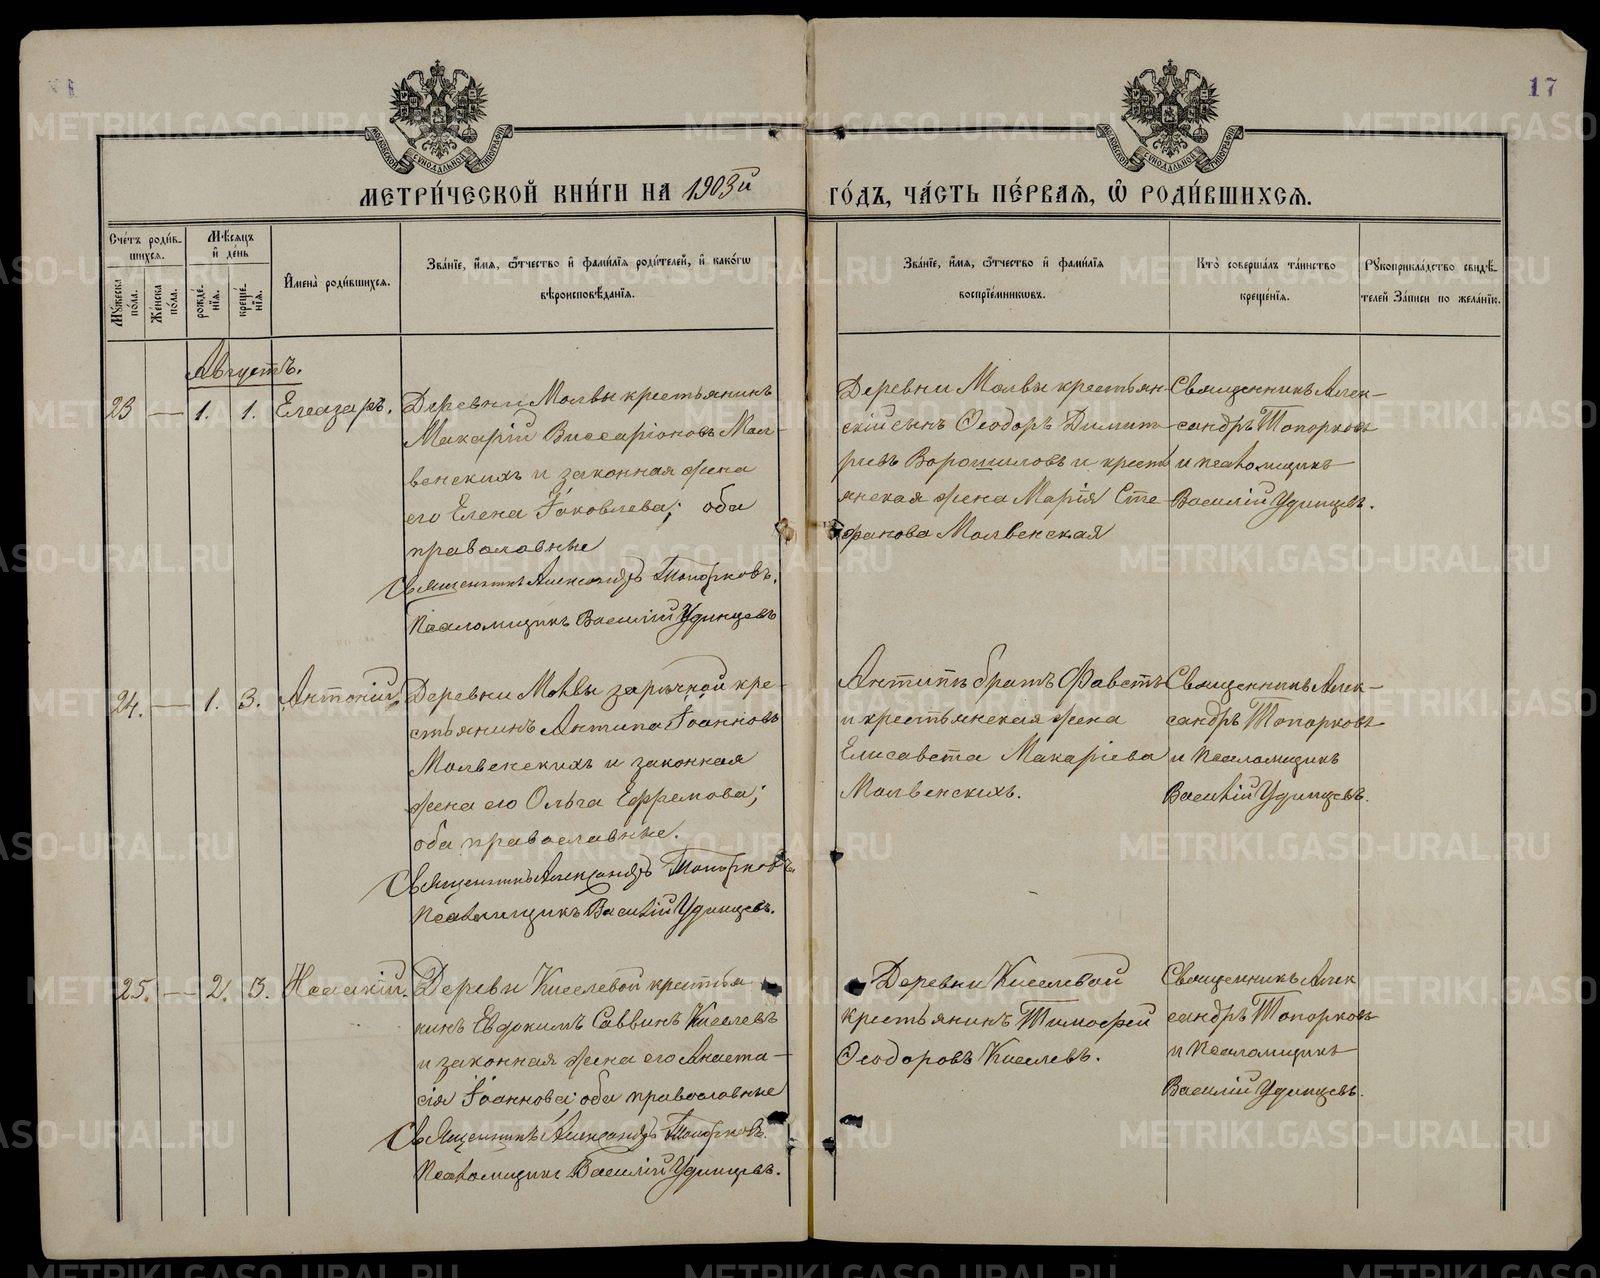 17
МОСКОВСКОЙ СѴНОДАЛЬНОЙ ТИПОГРАФІИ
МОСКОВСКОЙ СѴНОДАЛЬНОЙ ТИПОГРАФІИ
МЕТРИ́ЧЕСКОЙ КНИ́ГИ НА 1903й
ГО́ДЪ, ЧА́СТЬ ПЕ́РВАѦ, Ѽ РОДИ́ВШИХСѦ.
Сче́тъ роди́в-
шихся.
Му́жеска по́ла.
Же́нска по́ла.
Мѣ́сяцъ
и҆ де́нь
рожде́-
нїя.
креще́-
нїя.
И҆мена̀ роди́вшихся.
Зва́нїе, и҆́мя, ѻ҆́тчество и҆ фами́лїя роди́телей, и҆ како́гѡ
вѣроисповѣ́данїя.
Зва́нїе, и҆́мя, ѻ҆́тчество и҆ фами́лїя
воспрїе́мникѡвъ.
Кто̀ соверша́лъ та́инство
креще́нїя.
Рꙋкоприкла́дство свидѣ́-
телей За́писи по жела́нїю.
Августъ.
23 — 1. 1. Елеазаръ.
Деревни Молвы крестьянинъ
Макарій Виссаріоновъ Мол-
венскихъ и законная жена
его Елена Іаковлева; оба
православные
Священникъ Александръ Топорковъ.
Псаломщикъ Василій Удинцевъ
Деревни Молвы крестьян-
скій сынъ Ѳеодоръ Димит-
ріевъ Ворошиловъ и кресть
янская жена Марія Сте
фанова Молвенская
Священникъ Алек-
сандръ Топорковъ
и псаломщикъ
Василій Удинцевъ.
24. — 1. 3. Антоній.
Деревни Молвы заручной кре-
стьянинъ Антипа Іоанновъ
Молвенскихъ и законная
жена его Ольга Ефремова;
оба православные.
Священникъ Александръ Топорковъ
Псаломщикъ Василій Удинцевъ.
Антипъ братъ Фавстъ
и крестьянская жена
Елисавета Макаріева
Молвенскихъ.
Священникъ Алек-
сандръ Топорковъ
и псаломщикъ
Василій Удинцевъ.
25. — 2. 3. Исаакій.
Деревни Киселевой крестья
нинъ Евдокимъ Саввинъ Киселевъ
и законная жена его Анаста-
сія Іоаннова; оба православные
Священникъ Александръ Топорковъ.
Псаломщикъ Василій Удинцевъ.
Деревни Киселевой
крестьянинъ Тимофей
Ѳеодоровъ Киселевъ.
Священникъ Алек
сандръ Топорковъ
и псаломщикъ
Василій Удинцевъ.
METRIKI.GASO-URAL.RU